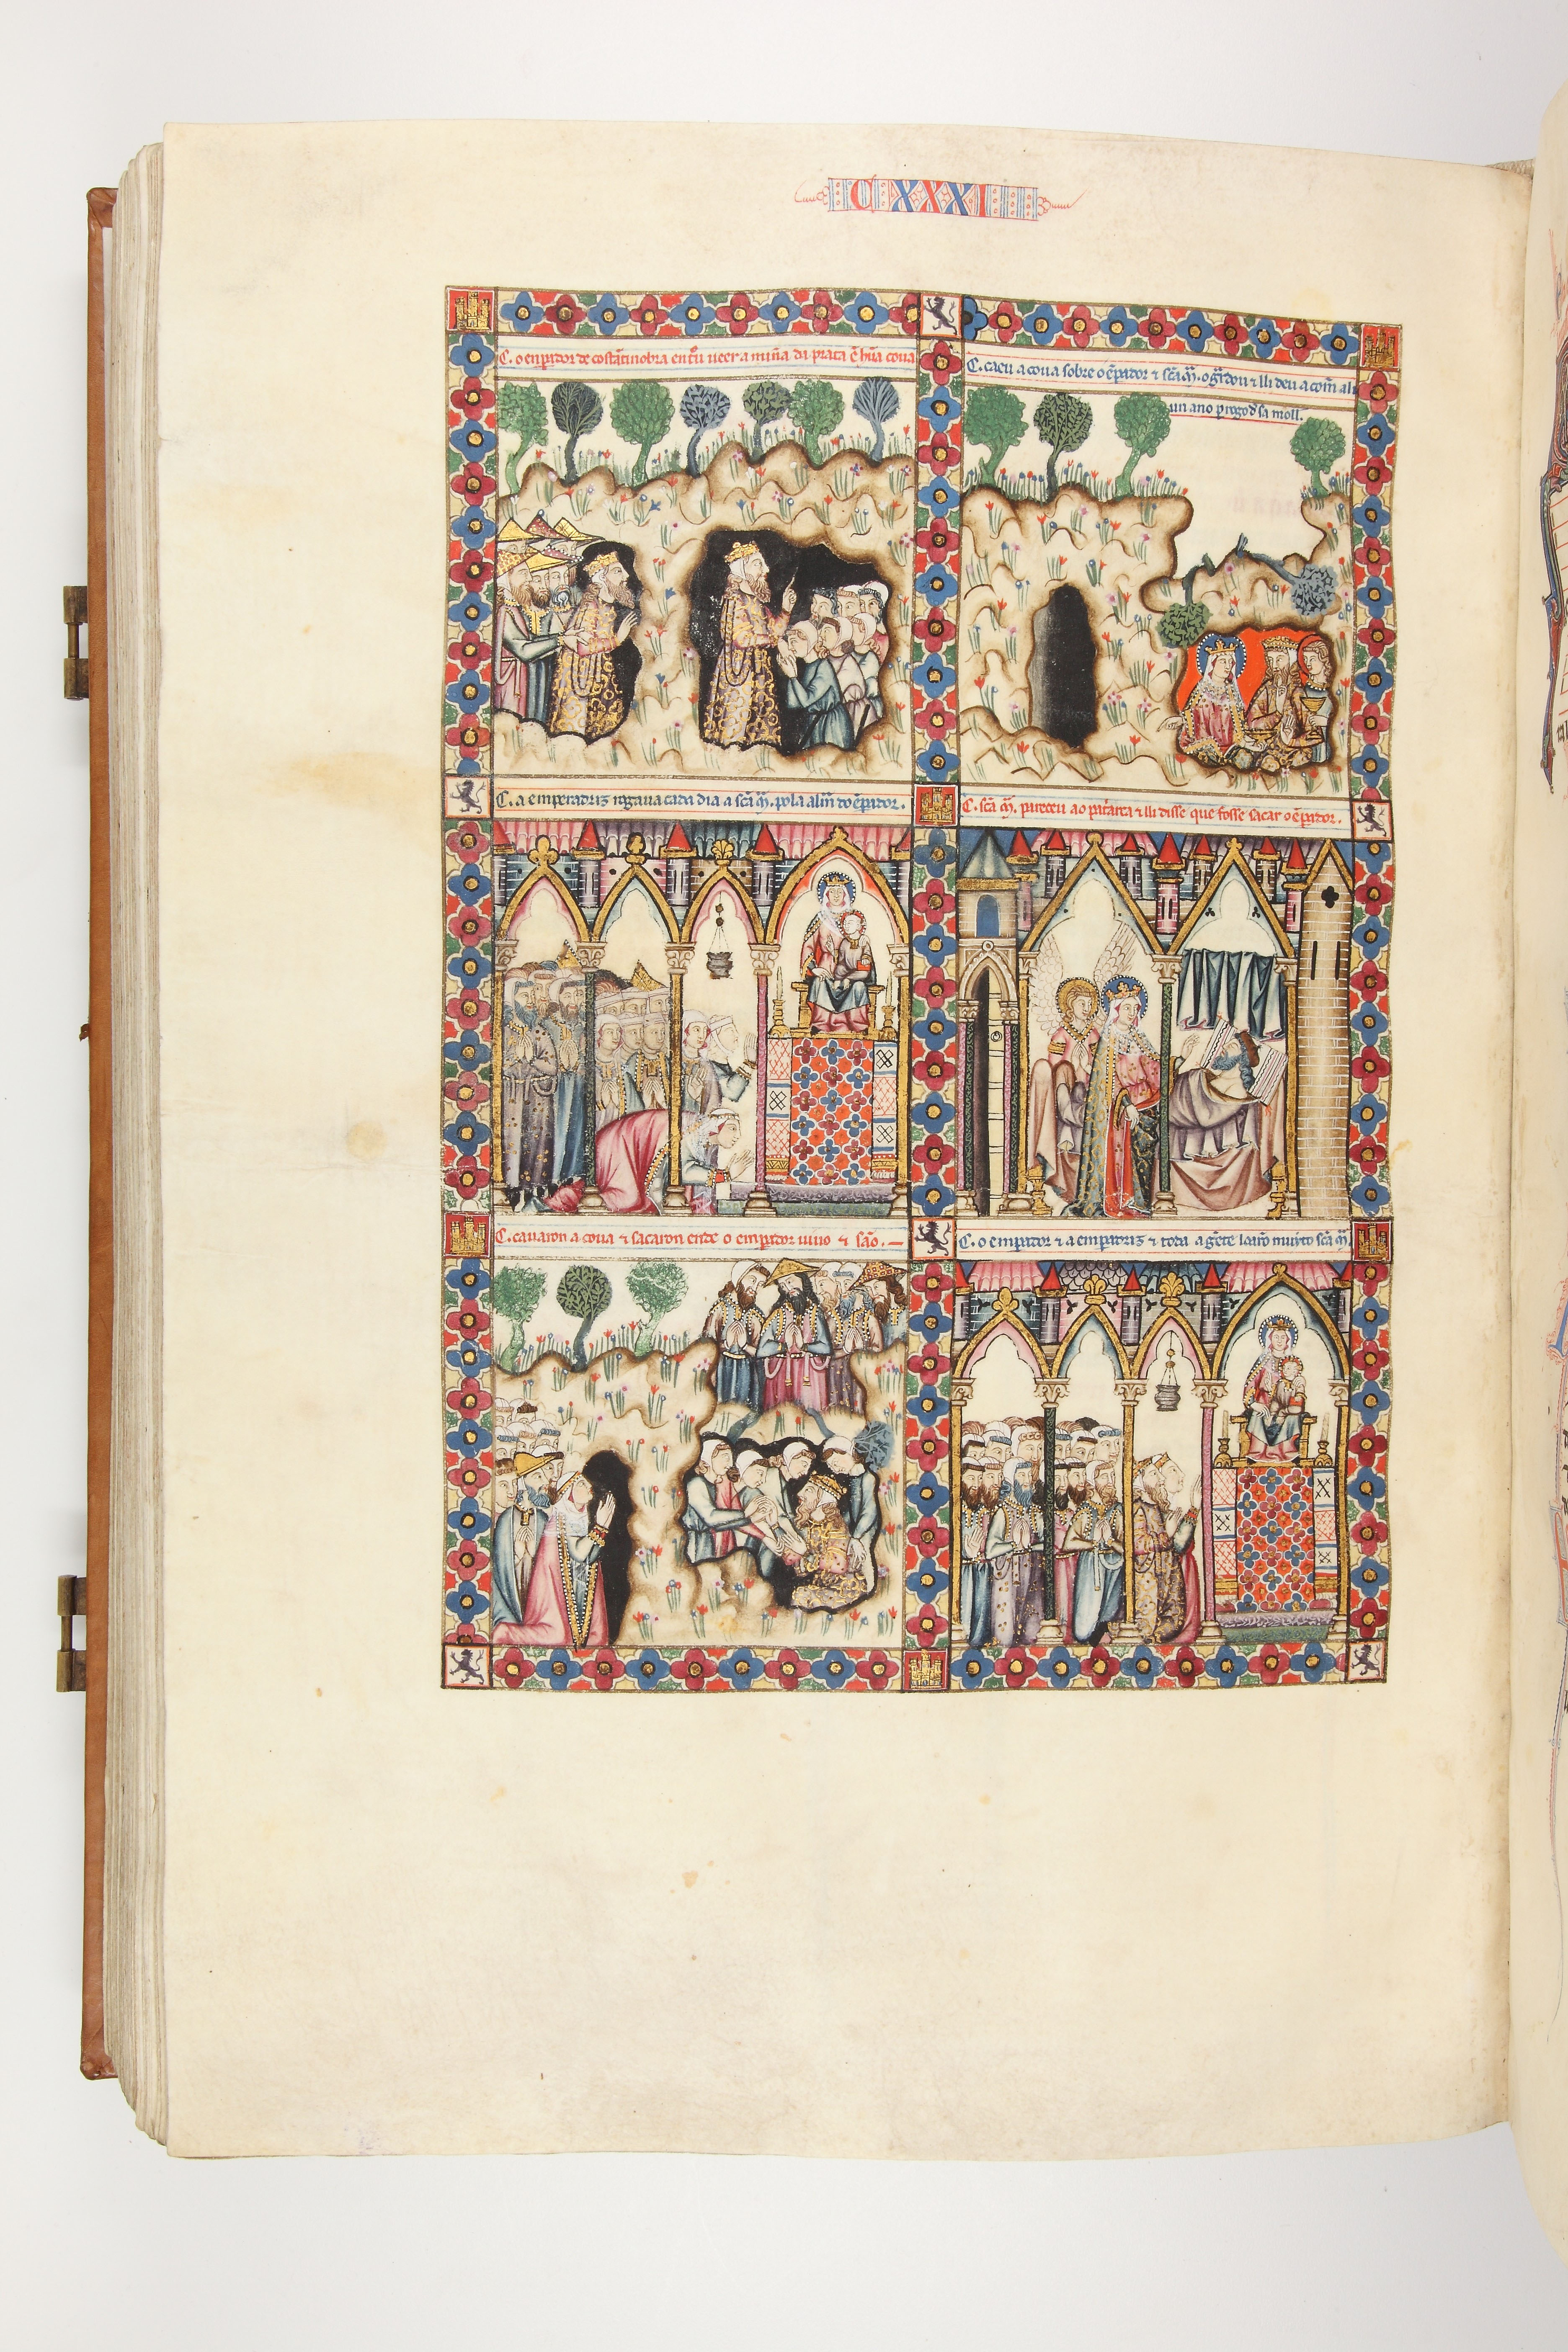 CXXXI
C. o enp̃ador de costãtinobra entrou ueer a mỹa da prata ẽ hũa coua
C. caeu a coua sobre o ẽp̃ador ⁊ sc̃a m̃. o g̃rdou ⁊ lli deu a com̃ ali
un ano p̃ rogo d̃ sa moll̃.
C. a emperadriz rogaua cada dia a sc̃a m̃. pola alm̃ do ẽp̃ador.
C. sc̃a m̃. pareceu ao pat̃arca ⁊ lli disse que fosse sacar o ẽp̃ador.
C. cauaron a coua ⁊ sacaron ende o emp̃ador uiuo ⁊ são.
C. o emp̃ador ⁊ a emp̃adriz ⁊ toda a g̃ete loarõ muyto sc̃a m̃.